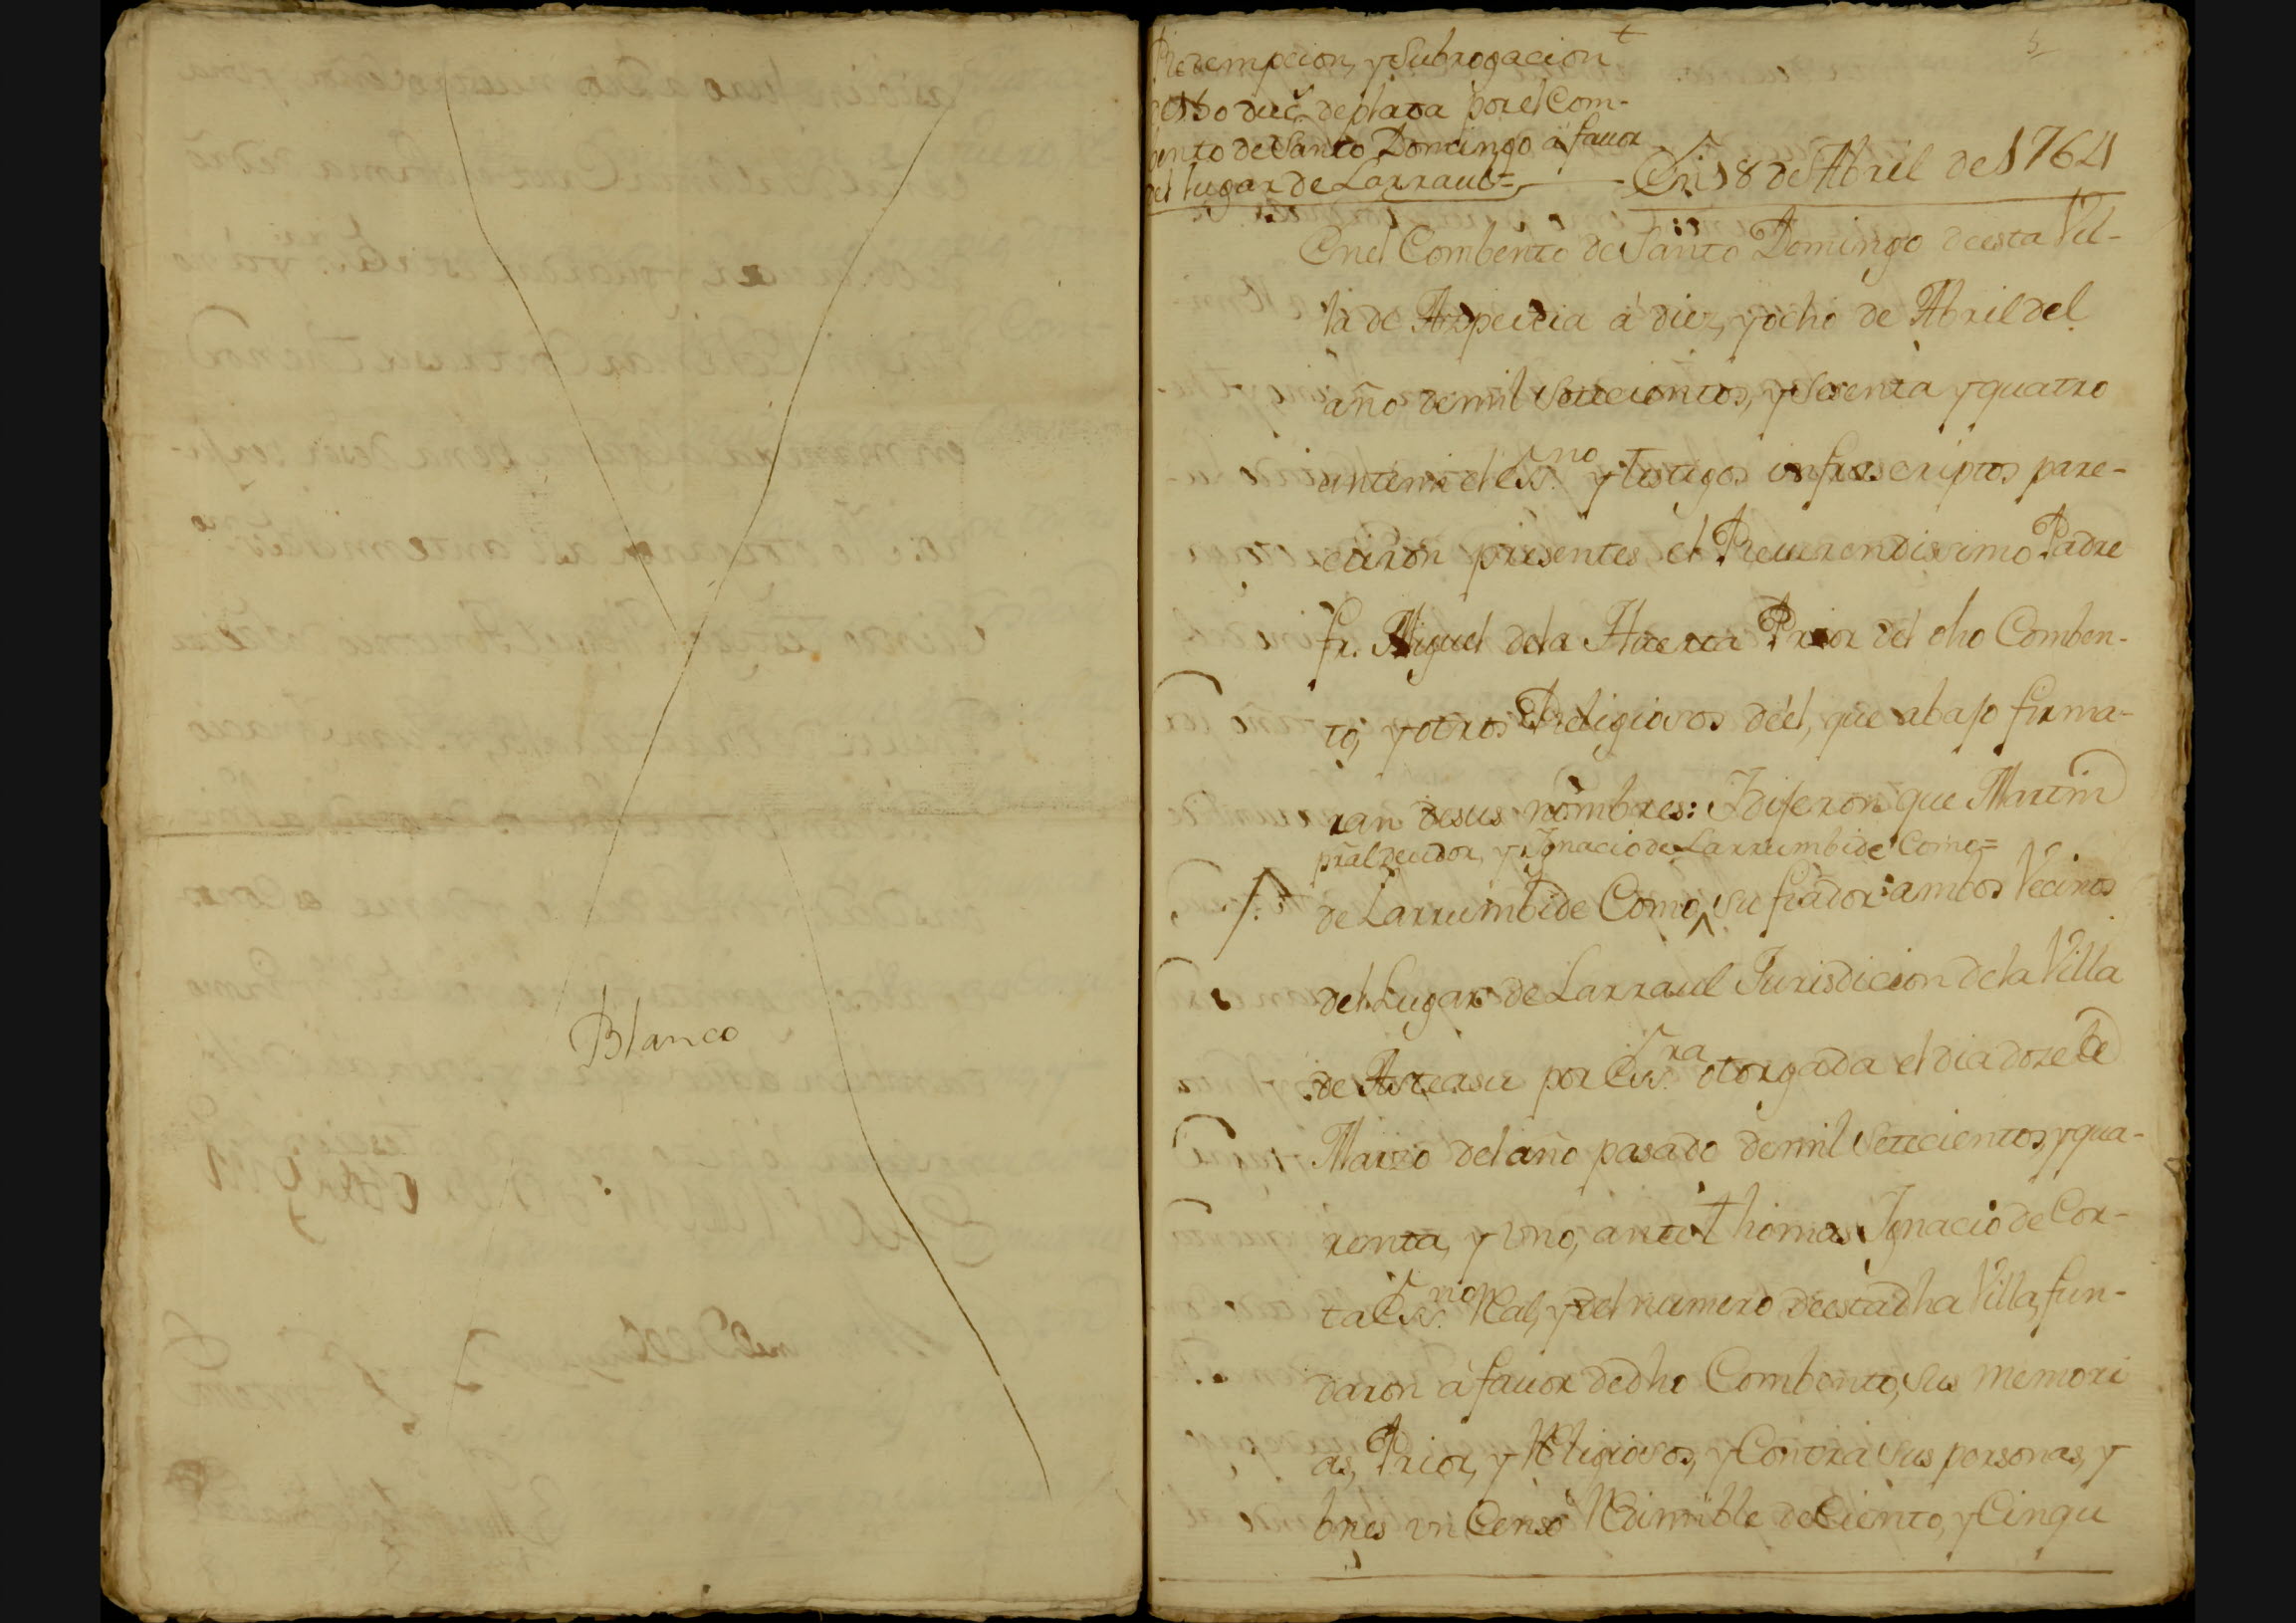 Blanco
Redempcion, y Subrogacion
de 150 duc.s de plata por el Com-
bento de Santo Domingo á fauor
del lugar de Larraul=
En 18 de Abril de 1764
En el Combento de Santo Domingo de esta Vil-
la de Azpeitia á diez, y ocho de Abril del
año de mil Settecientos, y Sesenta y quatro
ante mi el Ess.no y testigos infrascriptos pare-
cieron presentes el Reuerendissimo Padre
fr. Miguel de la Huerta Prior del dho Comben-
to, y otros Religiosos de el, que abajo firma-
ran de sus nombres: I dijeron que Martin
pñal deudor, y Ignacio de Larrumbide Como=
de Larrumbide Como su fiador ambos Vecinos
del Lugar de Larraul Jurisdicion de la Villa
de Asteasu por Ess.ra otorgada el dia doze de
Marzo del año pasado de mil Settecientos, y qua-
renta, y vno, ante Thomas Ignacio de Cor-
ta Ess.no Real, y del numero de esta dha Villa, fun-
daron á fauor de dho Combento, sus memori
as, Prior, y Religiosos, y Contra sus personas, y
bnes vn Censo Redimible de Ciento, y Cinqu